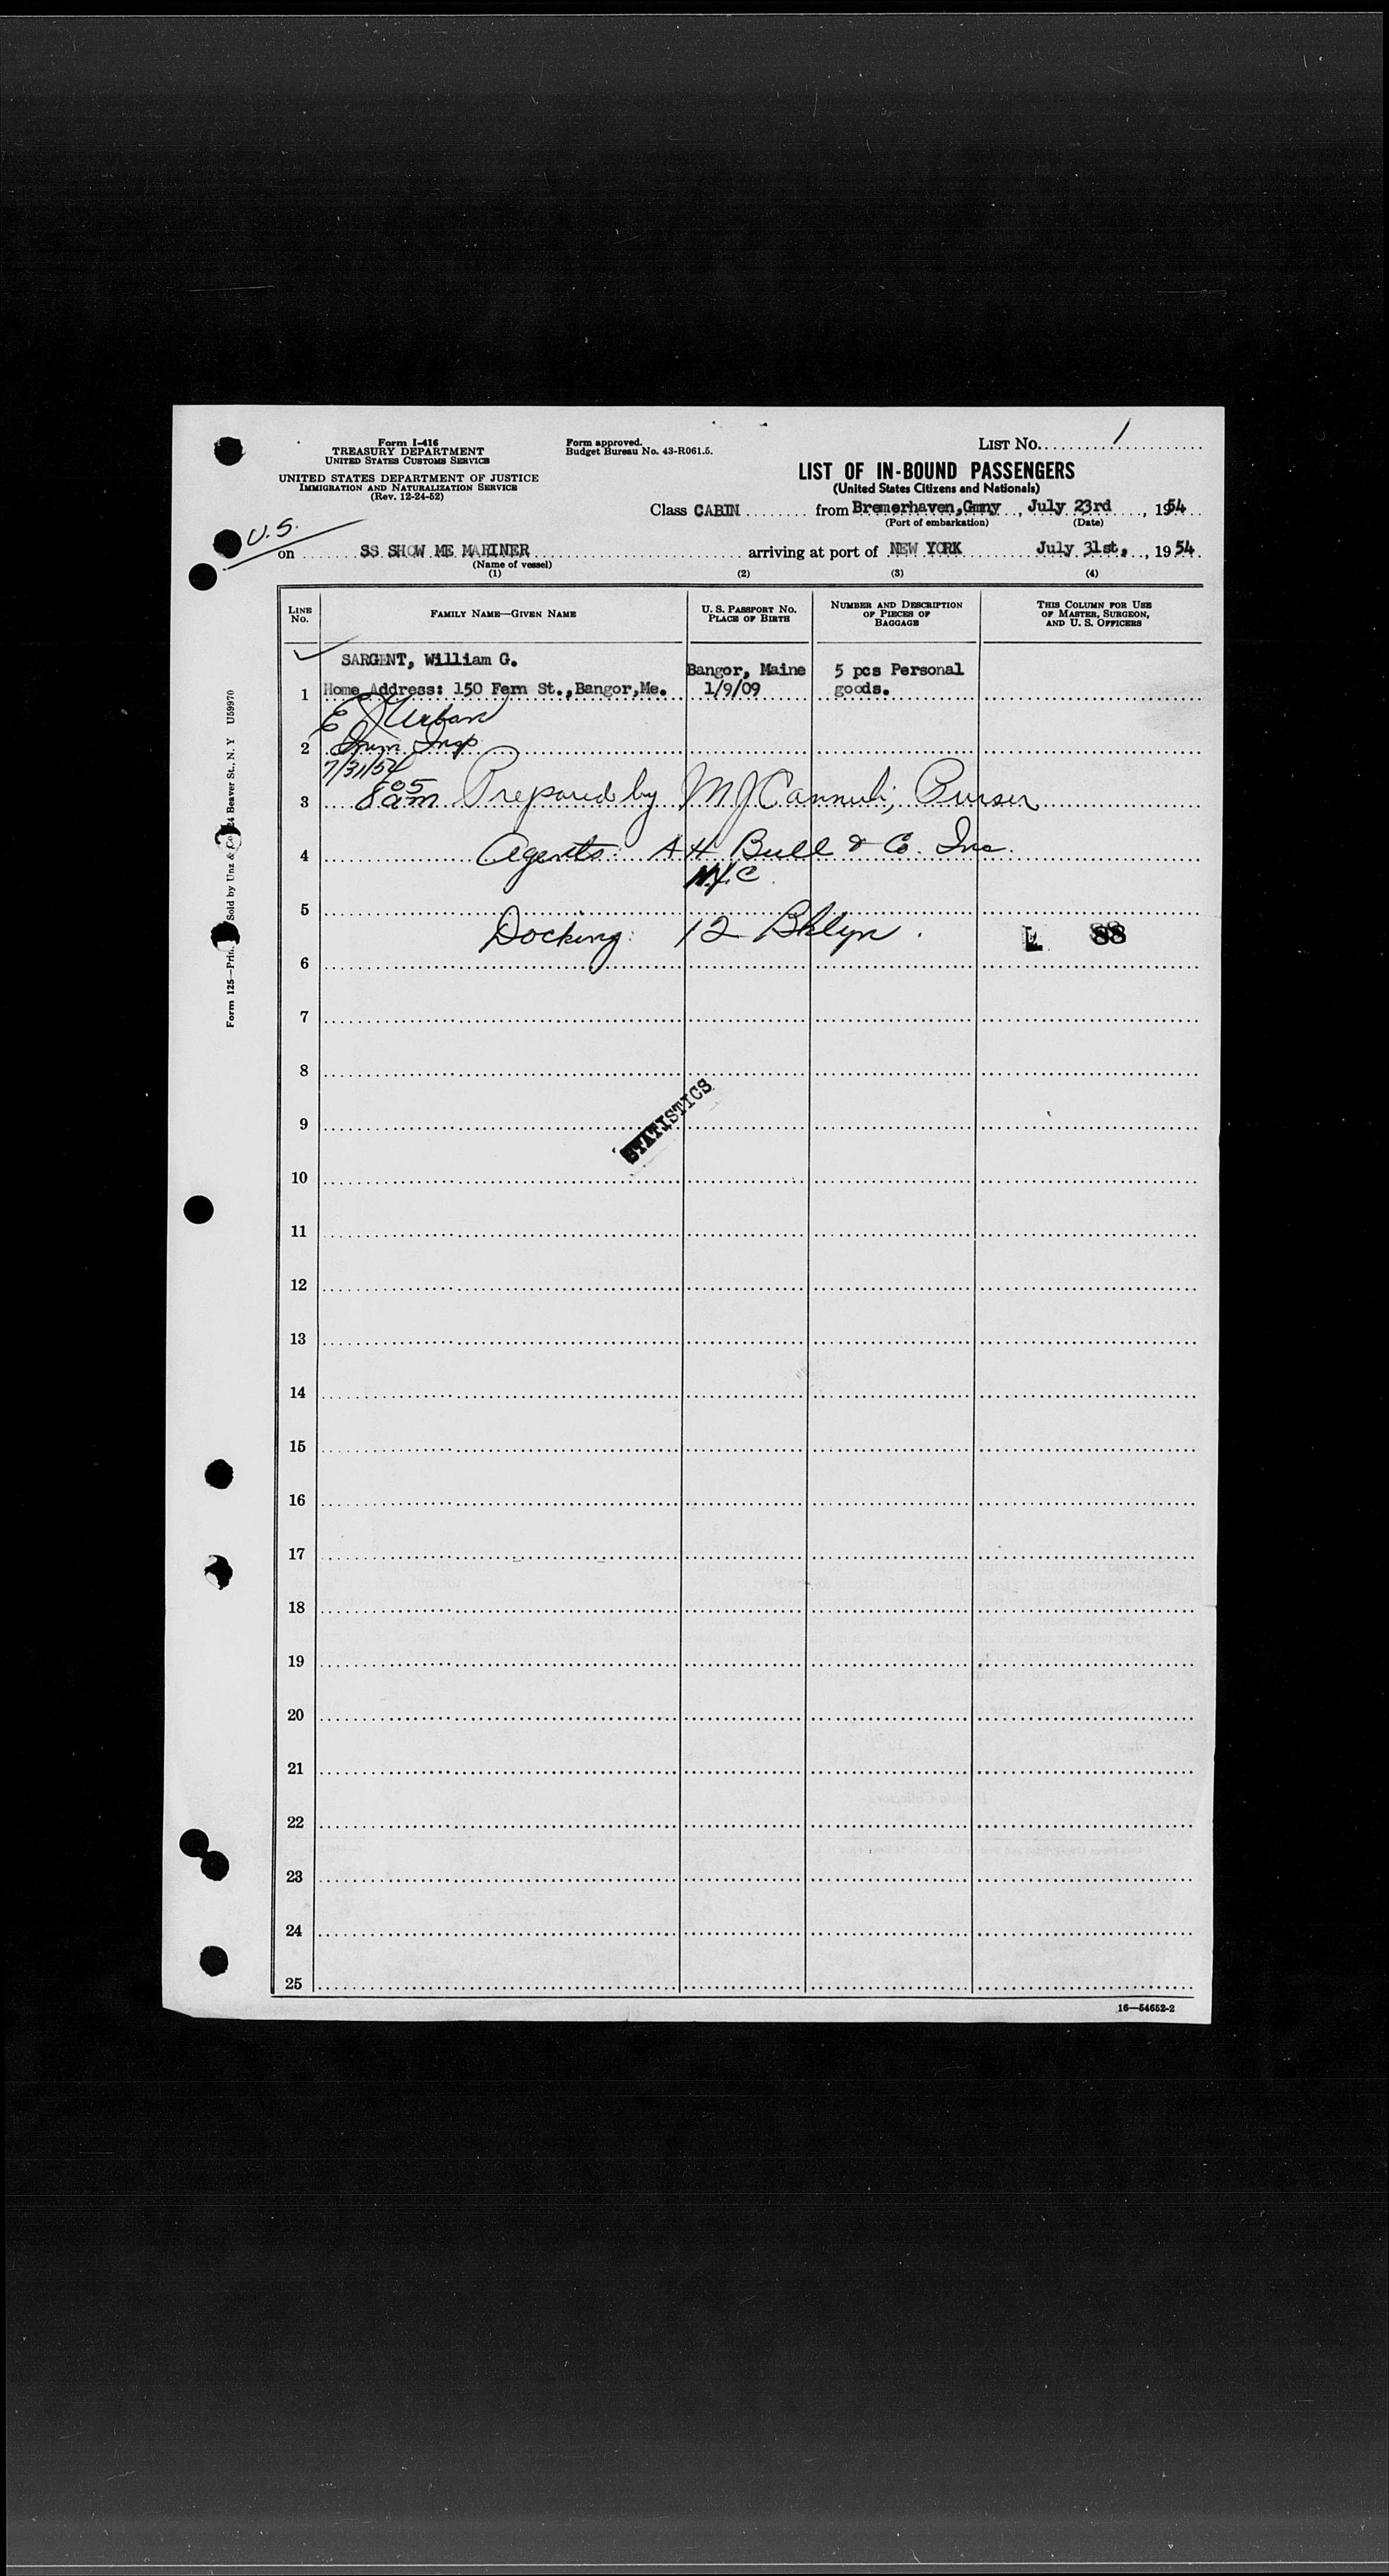 Form I-416
TREASURY DEPARTMENT
UNITED STATES CUSTOMS SERVICE
UNITED STATES DEPARTMENT OF JUSTICE
IMMIGRATION AND NATURALIZATION SERVICE
(Rev. 12-24-52)
Form approved.
Budget Bureau No. 43-R061.5.
LIST NO. 1
LIST OF IN-BOUND PASSENGERS
(United States Citizens and Nationals)
Class CABIN from Bremerhaven, Gmny, July 23rd, 1954
(Port of embarkation) (Date)
U.S.
on SS SHOW ME MARINER arriving at port of NEW YORK July 31st, 1954
(Name of vessel)
(1) (2) (3) (4)
LINE NO.
FAMILY NAME—GIVEN NAME
U. S. PASSPORT NO.
PLACE OF BIRTH
NUMBER AND DESCRIPTION
OF PIECES OF
BAGGAGE
THIS COLUMN FOR USE
OF MASTER, SURGEON,
AND U. S. OFFICERS
SARGENT, William G. Bangor, Maine 5 pcs Personal
1 Home Address: 150 Fern St., Bangor, Me. 1/9/09 goods.
E J Urban
2 Imm Insp
7/31/54
3 8 05 am Prepared by M J Cannuli, Purser
4 Agents: A H Bull & Co. Inc.
N.Y.C.
5
Docking: 12 Bklyn. 88
6
7
8
STATISTICS
9
10
11
12
13
14
15
16
17
18
19
20
21
22
23
24
25
16—54652-2
Form 125—Prin Sold by Unz & Co. 24 Beaver St., N. Y U59970